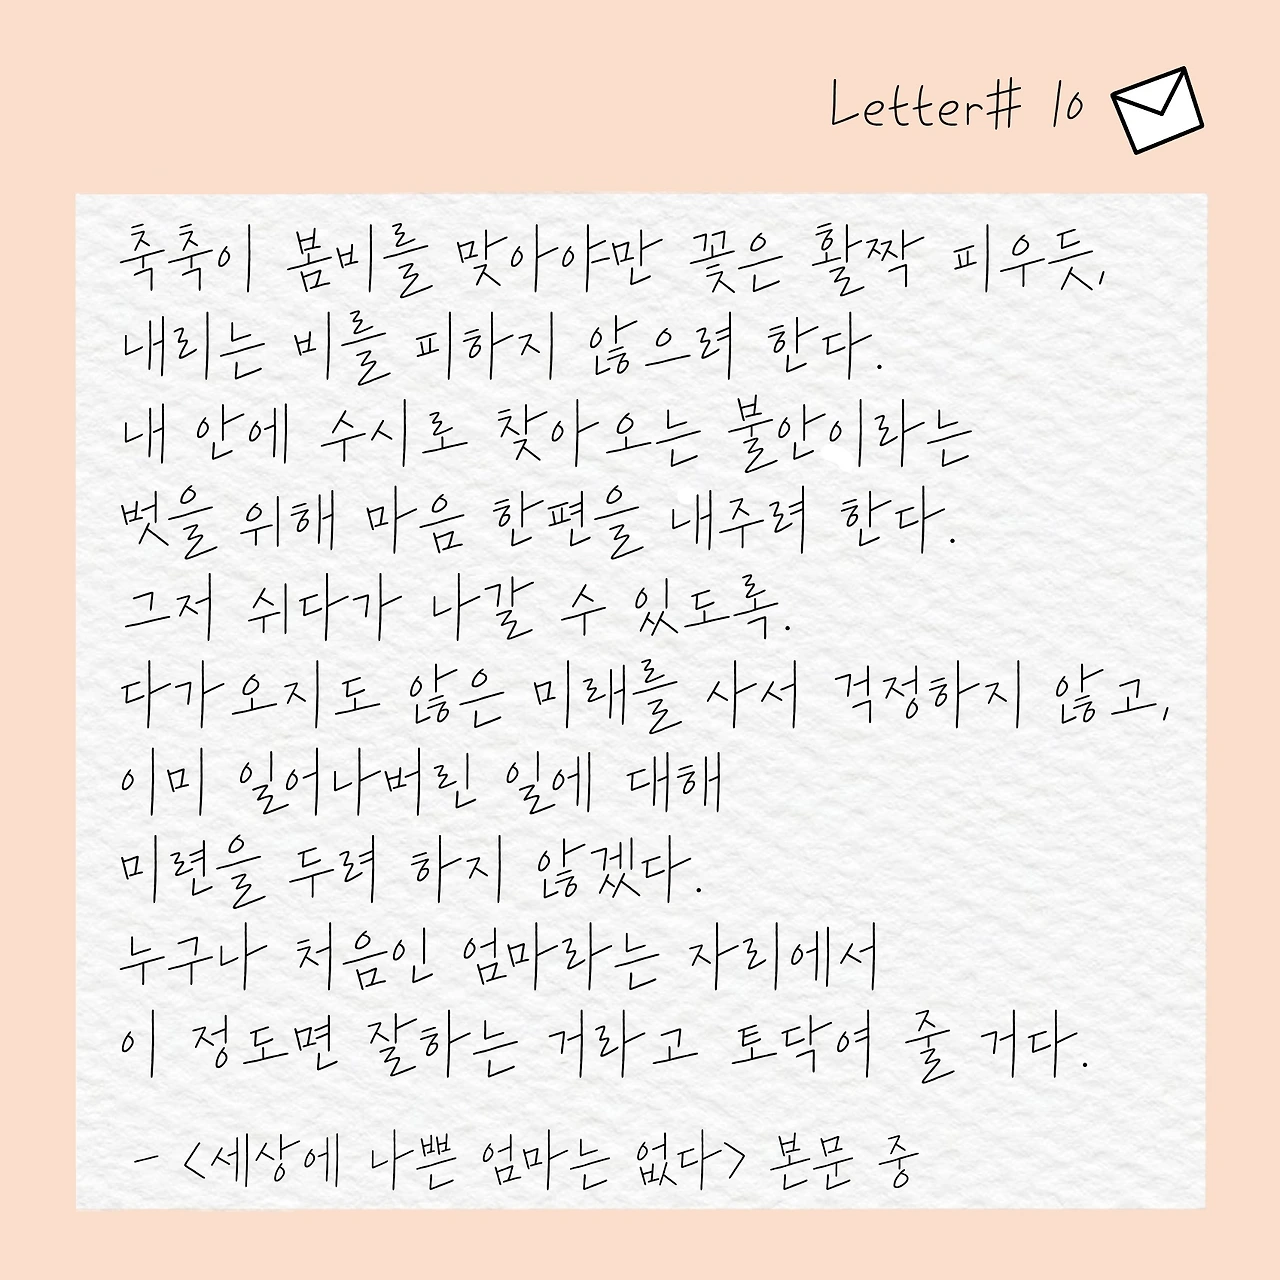 Letter# 10
축축이 봄비를 맞아야만 꽃은 활짝 피우듯,
내리는 비를 피하지 않으려 한다.
내 안에 수시로 찾아오는 불안이라는
벗을 위해 마음 한편을 내주려 한다.
그저 쉬다가 나갈 수 있도록.
다가오지도 않은 미래를 사서 걱정하지 않고,
이미 일어나버린 일에 대해
미련을 두려 하지 않겠다.
누구나 처음인 엄마라는 자리에서
이 정도면 잘하는 거라고 토닥여 줄 거다.
- <세상에 나쁜 엄마는 없다> 본문 중